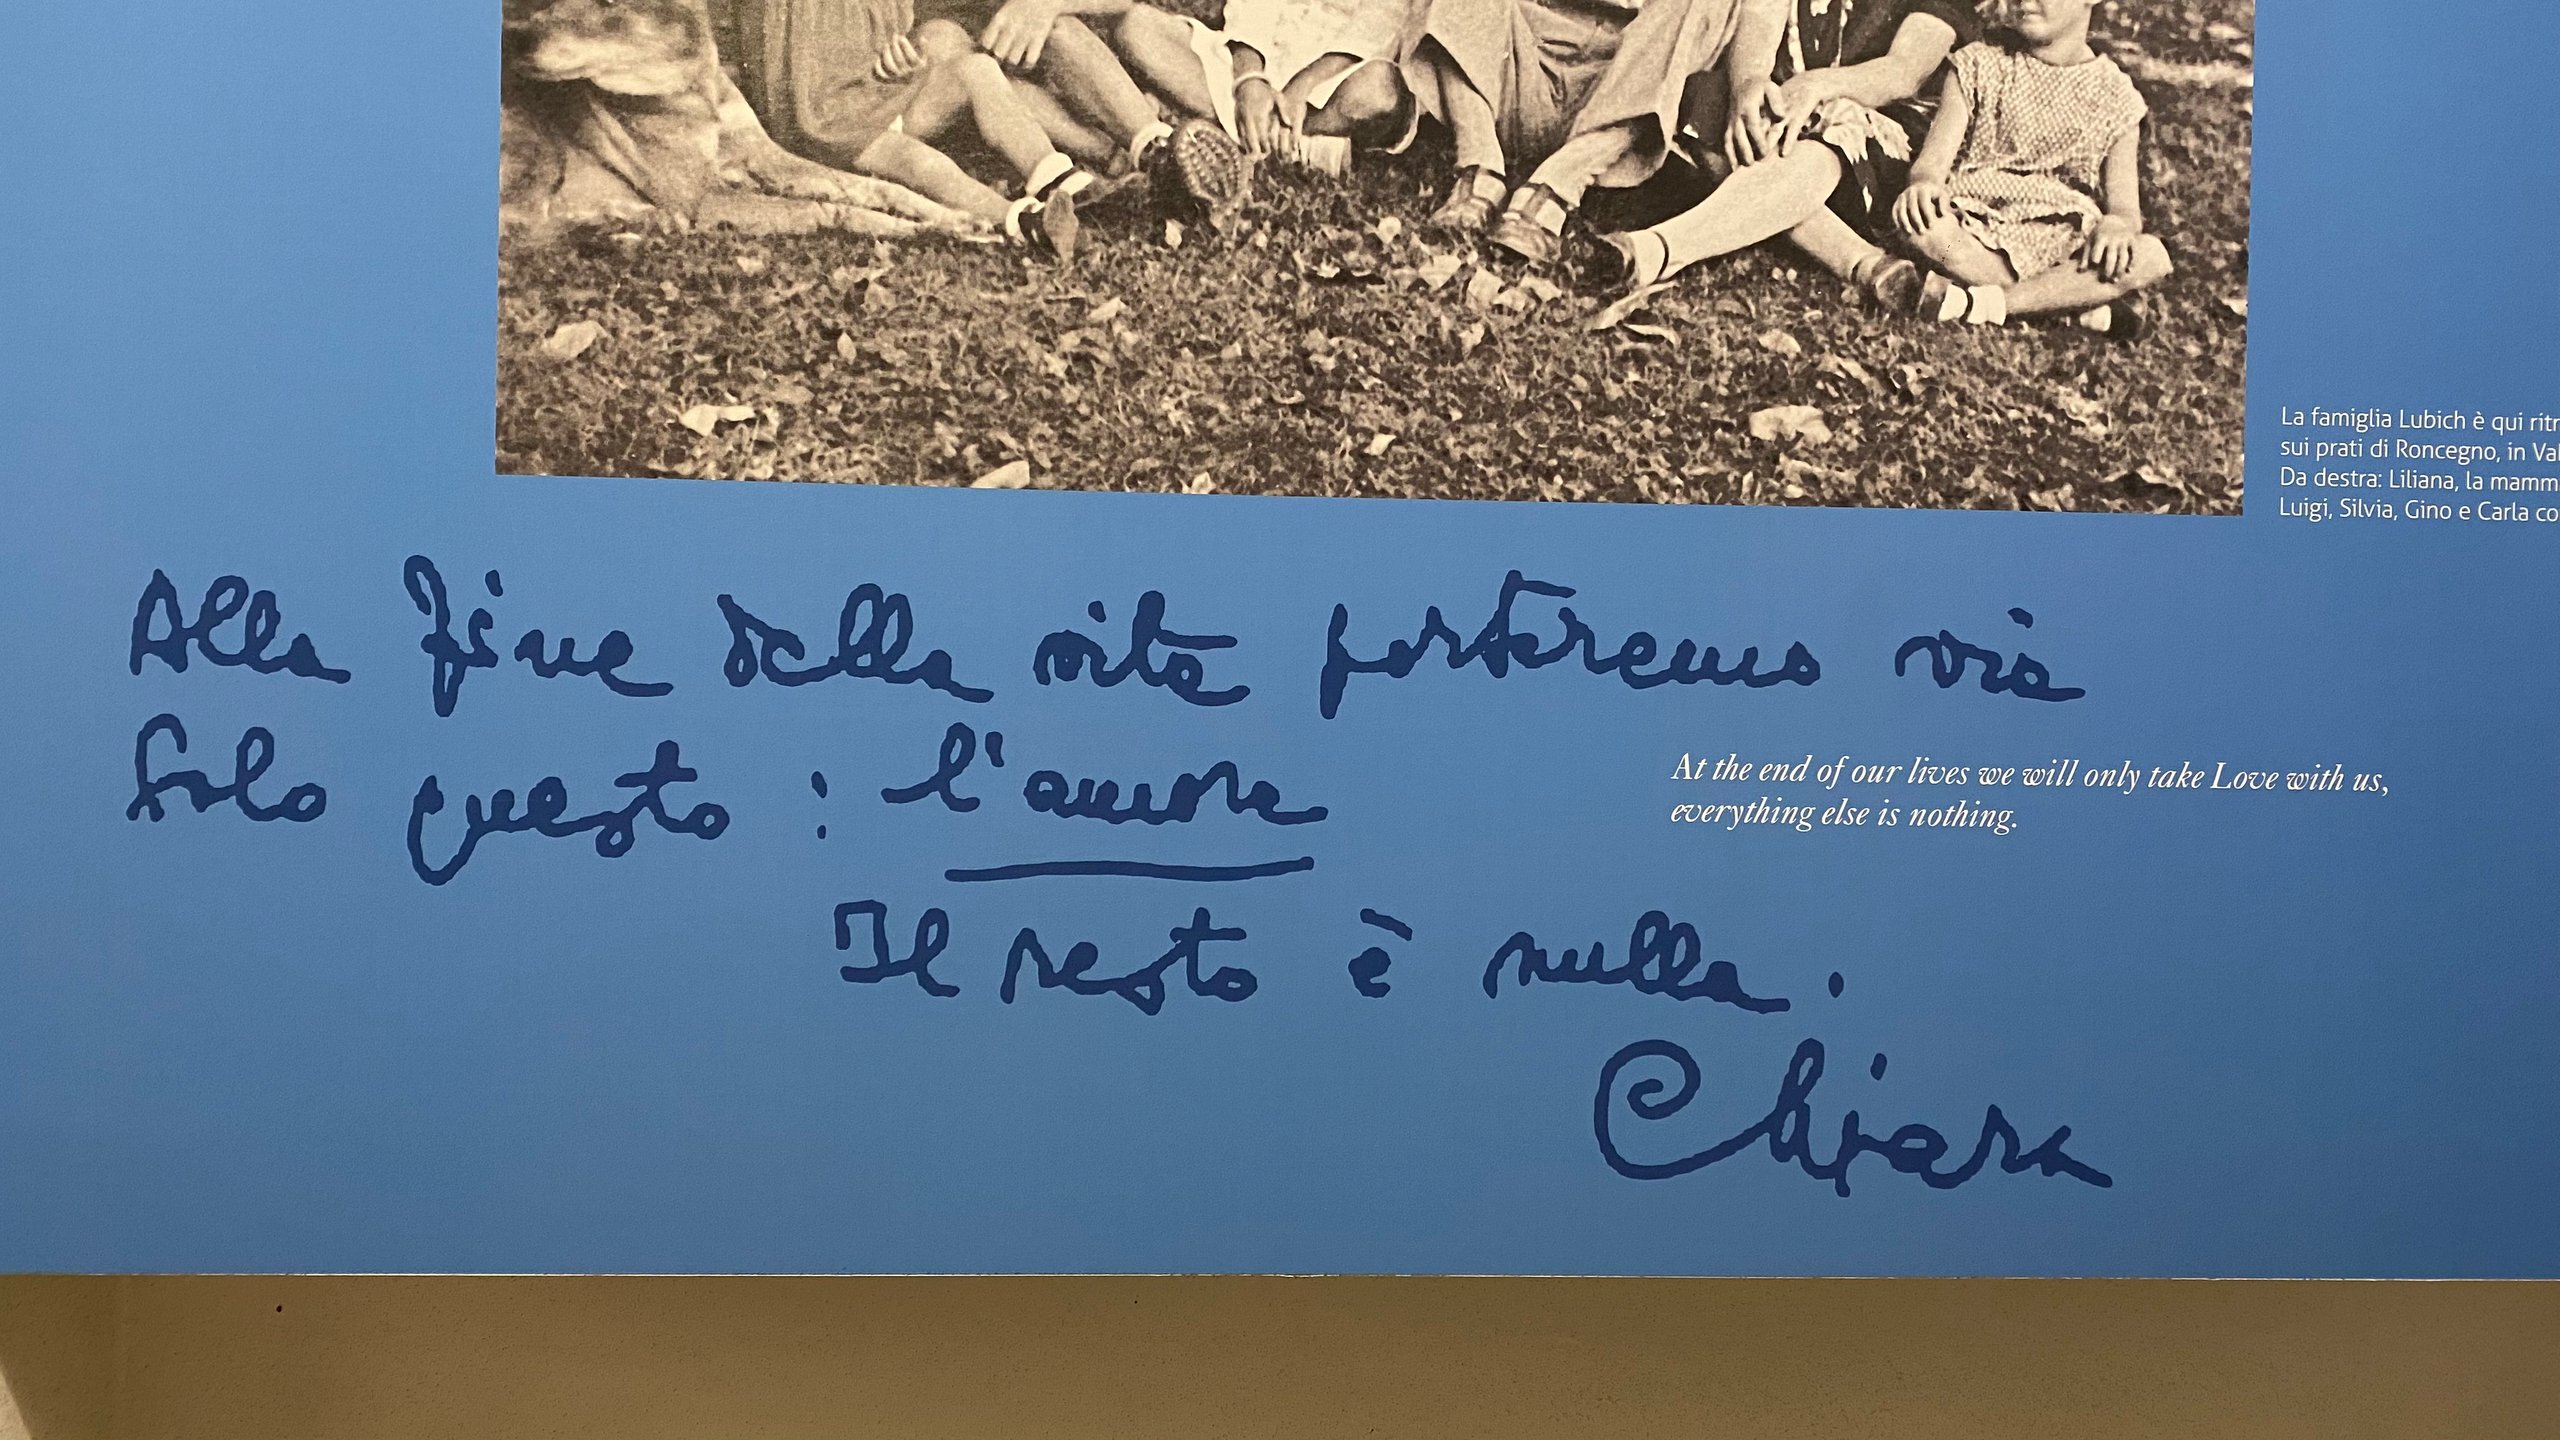 La famiglia Lubich è qui ritr
sui prati di Roncegno, in Val
Da destra: Liliana, la mamm
Luigi, Silvia, Gino e Carla co
Alla fine della vita porteremo via
solo questo: l'amore
Il resto è nulla.
Chiara
At the end of our lives we will only take Love with us,
everything else is nothing.